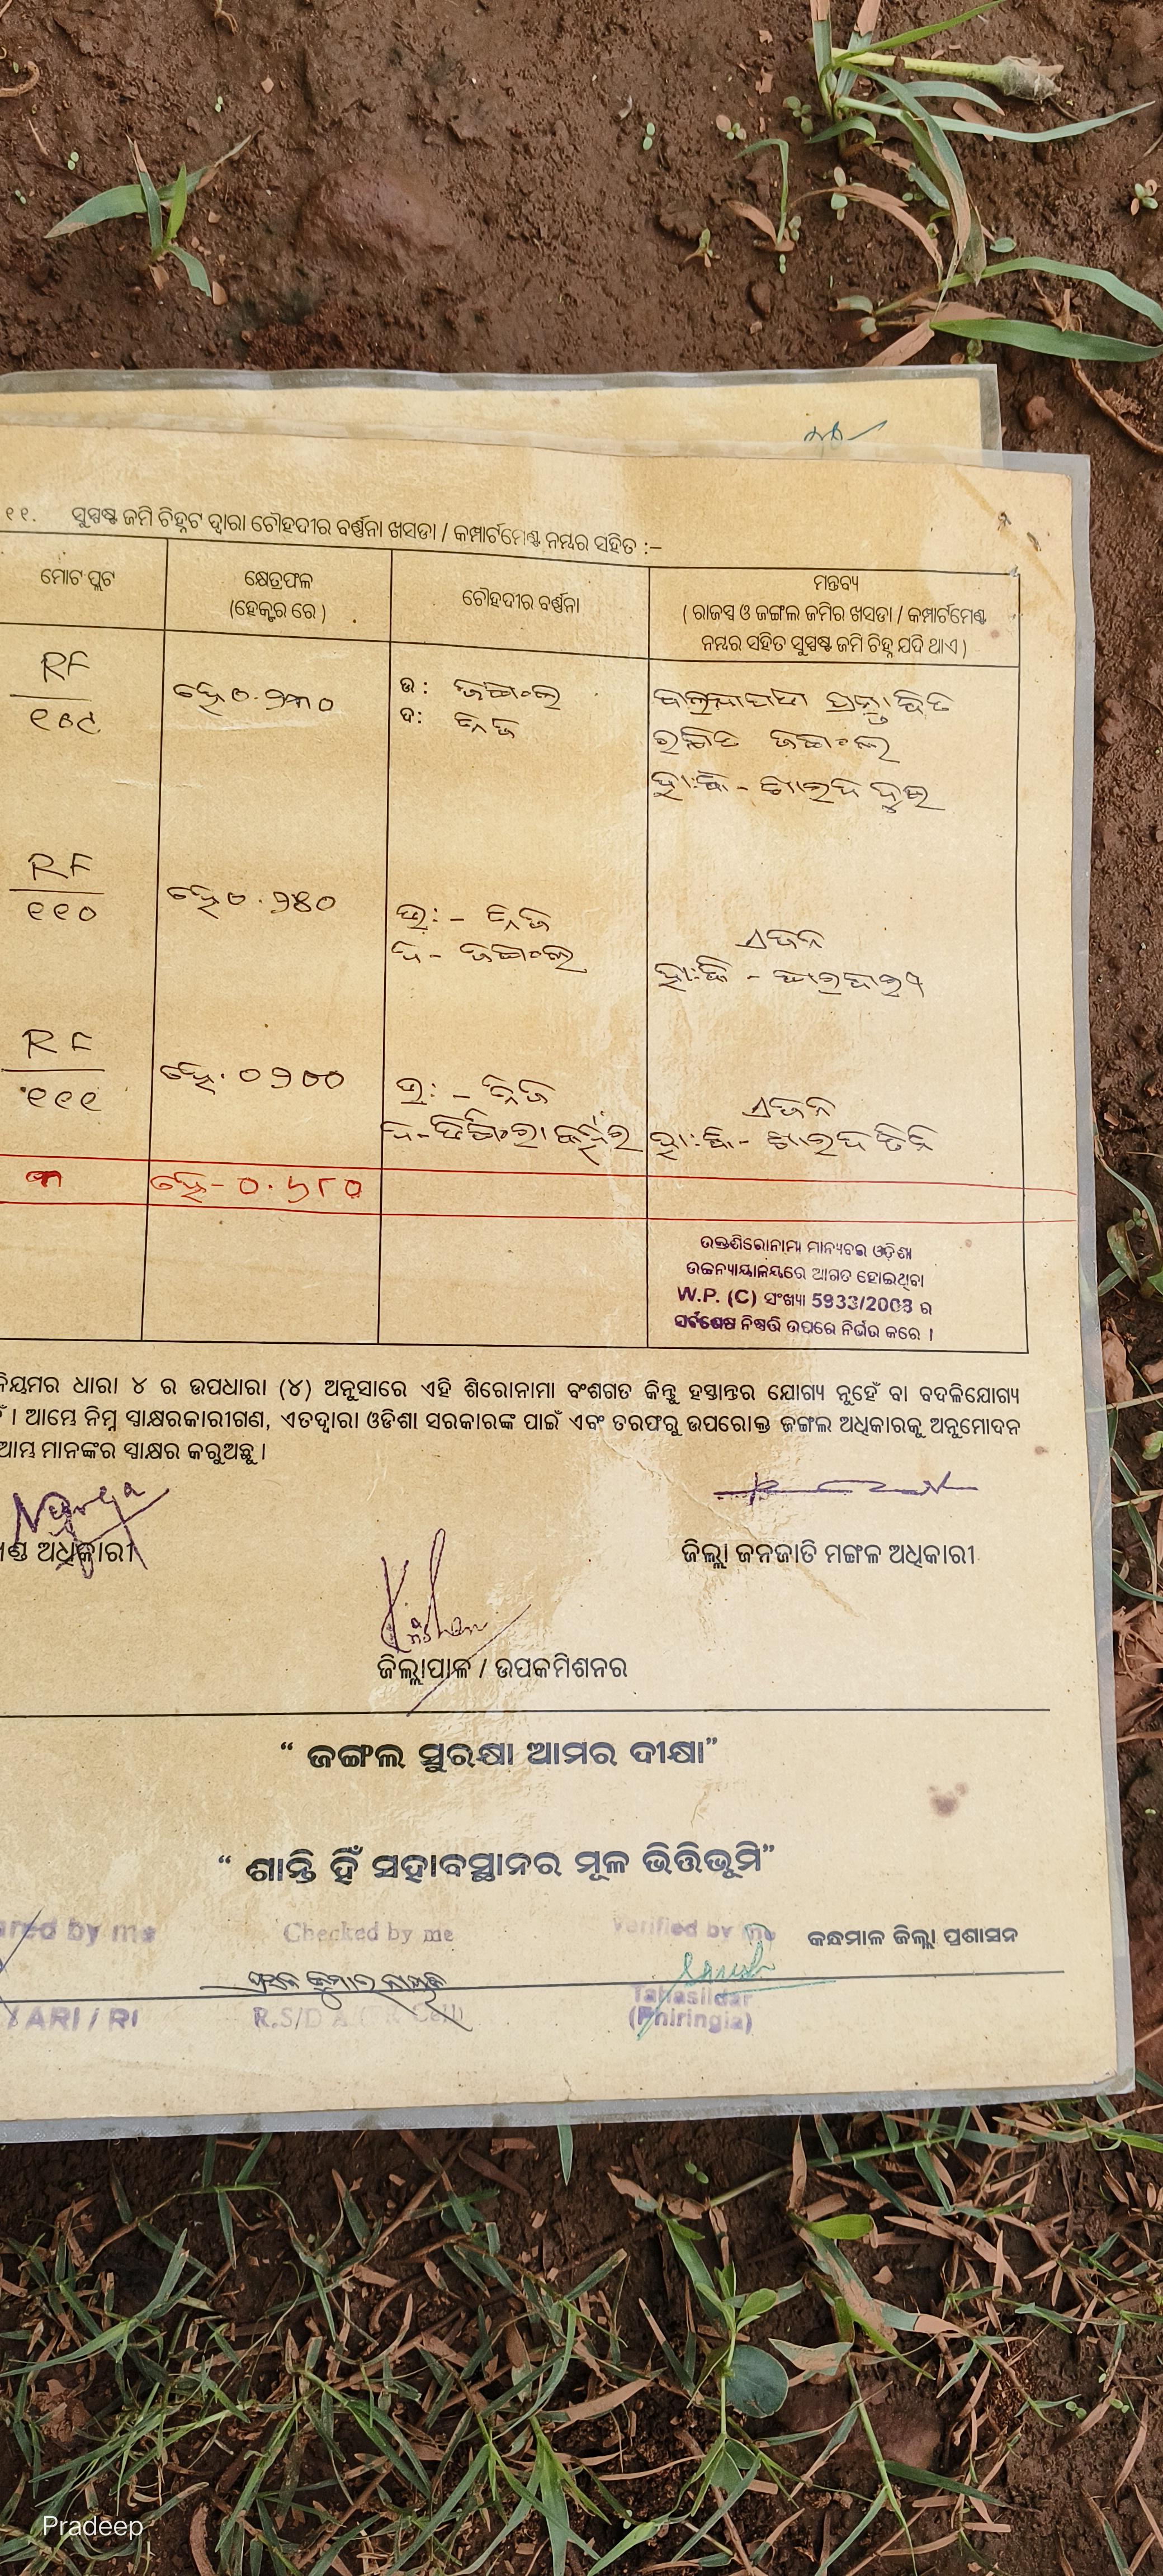 ୧୧. ସୁସ୍ପଷ୍ଟ ଜମି ଚିହ୍ନଟ ଦ୍ଵାରା ଚୌହଦୀର ବର୍ଣ୍ଣନା ଖସଡା / କମ୍ପାର୍ଟମେଣ୍ଟ ନମ୍ବର ସହିତ :–
ମୋଟ ପ୍ଲଟ
କ୍ଷେତ୍ରଫଳ
(ହେକ୍ଟର ରେ)
ଚୌହଦୀର ବର୍ଣ୍ଣନା
ମନ୍ତବ୍ୟ
( ରାଜସ୍ୱ ଓ ଜଙ୍ଗଲ ଜମିର ଖସଡା / କମ୍ପାର୍ଟମେଣ୍ଟ
ନମ୍ବର ସହିତ ସୁସ୍ପଷ୍ଟ ଜମି ଚିହ୍ନ ଯଦି ଥାଏ )
RF
୧୦୯
ହେ ୦.୨୩୦
ଉ: ଜଙ୍ଗଲ
ଦ: ନିଜ
ଜଙ୍ଗଲ
RF
୧୧୦
ହେ ୦.୨୫୦
ଉ: – ନିଜ
ଦ – ଜଙ୍ଗଲ
ଏଜନ
RF
୧୧୧
ହେ. ୦୨୦୦
ଉ: – ନିଜ
ଏଜନ
୩
ହେ – ୦.୬୮୦
ଉକ୍ତଶିରୋନାମା ମାନ୍ୟବର ଓଡ଼ିଶା
ଉଚ୍ଚନ୍ୟାୟାଳୟରେ ଆଗତ ହୋଇଥିବା
W.P. (C) ସଂଖ୍ୟା 5933/2008 ର
ସର୍ବଶେଷ ନିଷ୍ପତ୍ତି ଉପରେ ନିର୍ଭର କରେ ।
ନିୟମର ଧାରା ୪ ର ଉପଧାରା (୪) ଅନୁସାରେ ଏହି ଶିରୋନାମା ବଂଶଗତ କିନ୍ତୁ ହସ୍ତାନ୍ତର ଯୋଗ୍ୟ ନୁହେଁ ବା ବଦଳିଯୋଗ୍ୟ
। ଆମ୍ଭେ ନିମ୍ନ ସ୍ୱାକ୍ଷରକାରୀଗଣ, ଏତଦ୍ୱାରା ଓଡିଶା ସରକାରଙ୍କ ପାଇଁ ଏବଂ ତରଫରୁ ଉପରୋକ୍ତ ଜଙ୍ଗଲ ଅଧିକାରକୁ ଅନୁମୋଦନ
ଆମ୍ଭ ମାନଙ୍କର ସ୍ୱାକ୍ଷର କରୁଅଛୁ ।
ଅଧିକାରୀ
ଜିଲ୍ଲା ଜନଜାତି ମଙ୍ଗଳ ଅଧିକାରୀ
ଜିଲ୍ଲାପାଳ / ଉପକମିଶନର
“ ଜଙ୍ଗଲ ସୁରକ୍ଷା ଆମର ଦୀକ୍ଷା”
“ ଶାନ୍ତି ହିଁ ସହାବସ୍ଥାନର ମୂଳ ଭିତ୍ତିଭୂମି”
by me
Checked by me
Verified by me
କନ୍ଧମାଳ ଜିଲ୍ଲା ପ୍ରଶାସନ
/ ARI / RI
Tahasildar
(Phiringia)
Pradeep